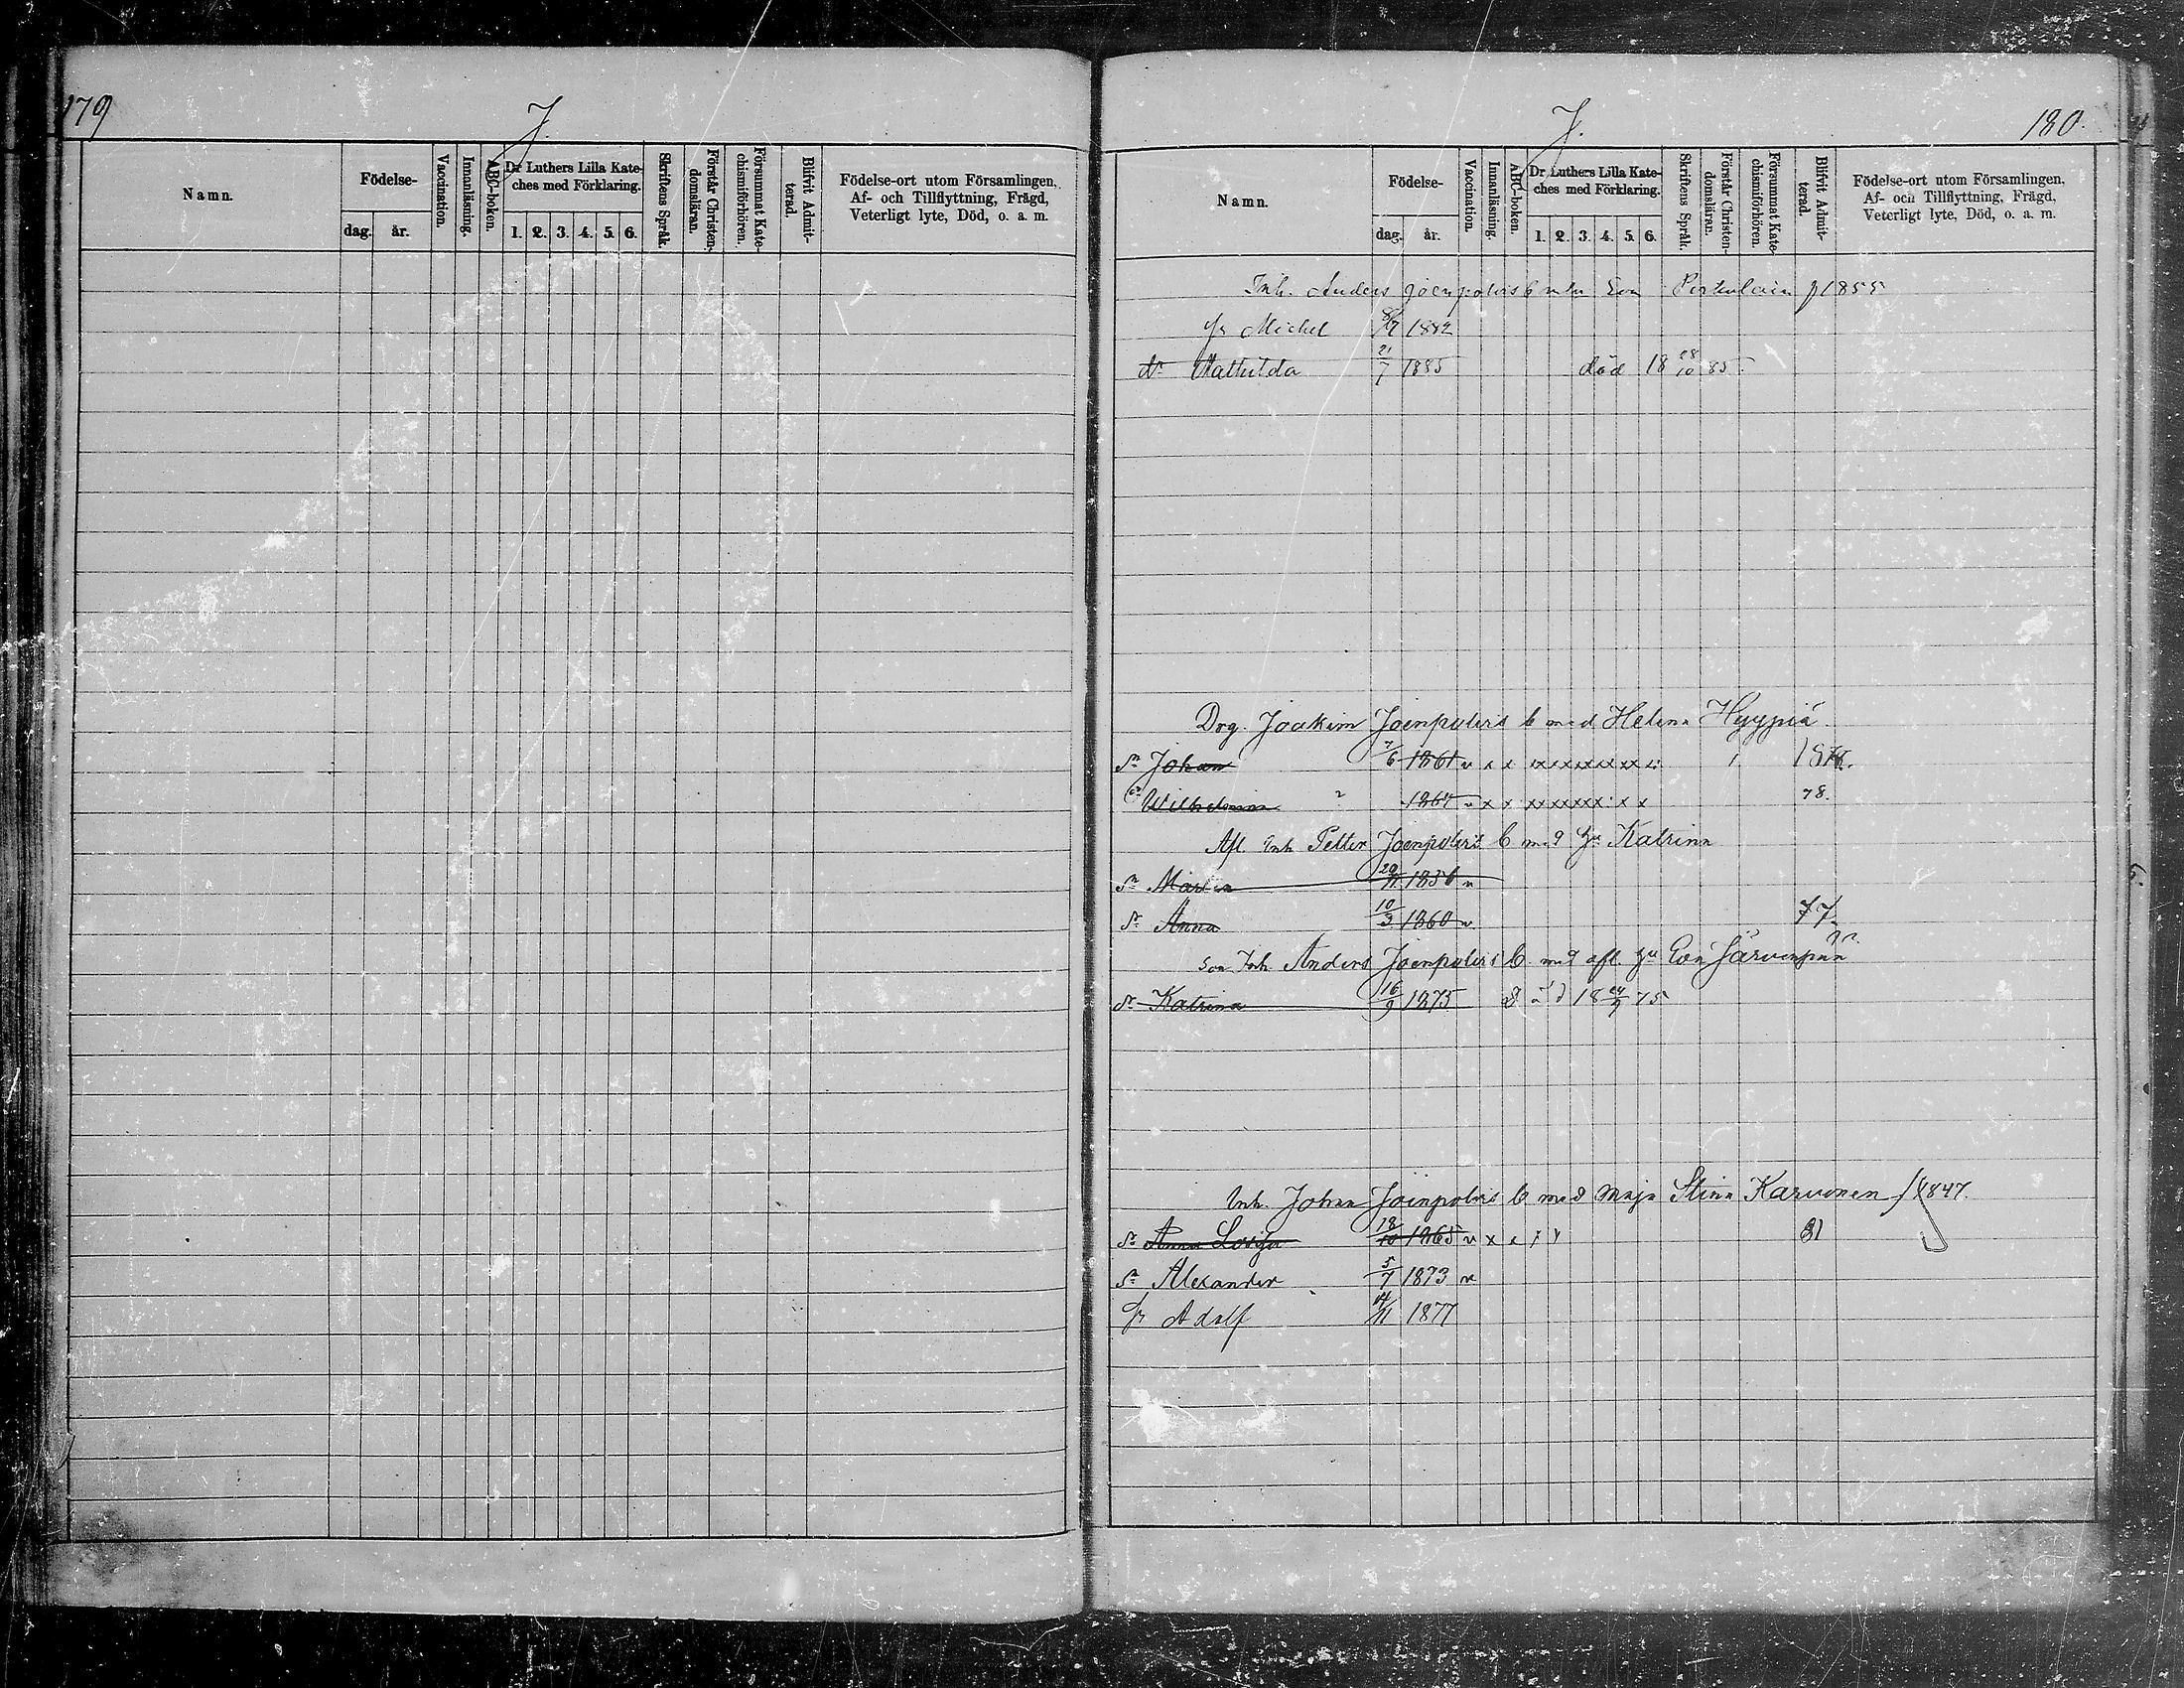 179
J.
Namn.
Födelse-
dag.
år.
Vaccination.
Innanläsning.
ABC-boken.
Dr Luthers Lilla Kate-
ches med Förklaring.
1. 2. 3. 4. 5. 6.
Skriftens Språk.
Förstår Christen-
domsläran.
Försummat Kate-
chismiförhören.
Blifvit Admit-
terad.
Födelse-ort utom Församlingen,
Af- och Tillflyttning, Frägd,
Veterligt lyte, Död, o. a. m.
J.
180.
Namn.
Födelse-
dag.
år.
Vaccination.
Innanläsning.
ABC-boken.
Dr Luthers Lilla Kate-
ches med Förklaring.
1. 2. 3. 4. 5. 6.
Skriftens Språk.
Förstår Christen-
domsläran.
Försummat Kate-
chismiförhören.
Blifvit Admit-
terad.
Födelse-ort utom Församlingen,
Af- och Tillflyttning, Frägd,
Veterligt lyte, Död, o. a. m.
Inh. Anders Joenpolvis b Eva 1855
Michel 8/7 1882
Mathilda 21/7 1885 död 18 28/10 85
Drg. Joakim Joenpolvis b med Helena Hyypiä
Johan 7/6 1861 v x x x x x x x x x
Wilhelmina 1864 v x x x x x x x x x 78.
Afl. Inh Petter Joenpolvis b med Katrina
20/11 1856 v
Anna 10/3 1860 v 77
Son Inh Anders Joenpolvis b. med afl. Eva Järvenpää
Katrina 16/9 1875 död 18 24/9 75
Inh. Johan Joenpolvis b med Maja Stina Karvonen f 1847.
Anna Lovisa 18/10 1865 v x x 81
Alexander 5/7 1873 v
Adolf 14/11 1877